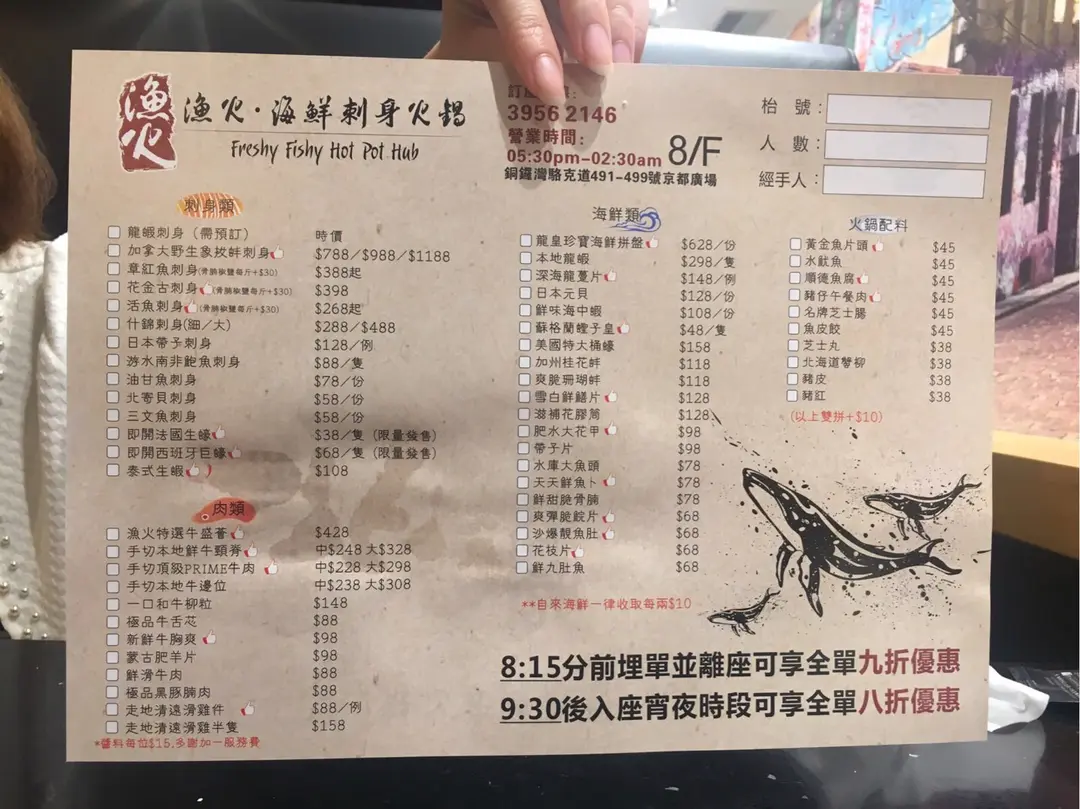 漁火
漁火·海鮮刺身火鍋
Freshy Fishy Hot Pot Hub
3956 2146
營業時間:
05:30pm-02:30am 8/F
銅鑼灣駱克道491-499號京都廣場
枱 號:
人 數:
經手人:
刺身類
龍蝦刺身 (需預訂) 時價
加拿大野生象拔蚌刺身 $788/$988/$1188
章紅魚刺身(骨腩椒鹽每斤+$30) $388起
花金古刺身 (骨腩椒鹽每斤+$30) $398
活魚刺身 (骨腩椒鹽每斤+$30) $268起
什錦刺身(細/大) $288/$488
日本帶子刺身 $128/例
游水南非鮑魚刺身 $88/隻
油甘魚刺身 $78/份
北寄貝刺身 $58/份
三文魚刺身 $58/份
即開法國生蠔 $38/隻 (限量發售)
即開西班牙巨蠔 $68/隻 (限量發售)
泰式生蝦 $108
肉類
漁火特選牛盛薈 $428
手切本地鮮牛頸脊 中$248 大$328
手切頂級PRIME牛肉 中$228 大$298
手切本地牛邊位 中$238 大$308
一口和牛柳粒 $148
極品牛舌芯 $88
新鮮牛胸爽 $98
蒙古肥羊片 $98
鮮滑牛肉 $88
極品黑豚腩肉 $88
走地清遠滑雞件 $88/例
走地清遠滑雞半隻 $158
*醬料每位$15,多謝加一服務費
海鮮類
龍皇珍寶海鮮拼盤 $628/份
本地龍蝦 $298/隻
深海龍躉片 $148/例
日本元貝 $128/份
鮮味海中蝦 $108/份
蘇格蘭蟶子皇 $48/隻
美國特大桶蠔 $158
加州桂花蚌 $118
爽脆珊瑚蚌 $118
雪白鮮鱔片 $128
滋補花膠筒 $128
肥水大花甲 $98
帶子片 $98
水庫大魚頭 $78
天天鮮魚卜 $78
鮮甜脆骨腩 $78
爽彈脆鯇片 $68
沙爆靚魚肚 $68
花枝片 $68
鮮九肚魚 $68
**自來海鮮一律收取每兩$10
火鍋配料
黃金魚片頭 $45
水魷魚 $45
順德魚腐 $45
豬仔午餐肉 $45
名牌芝士腸 $45
魚皮餃 $45
芝士丸 $38
北海道蟹柳 $38
豬皮 $38
豬紅 $38
(以上雙拼+$10)
8:15分前埋單並離座可享全單九折優惠
9:30後入座宵夜時段可享全單八折優惠